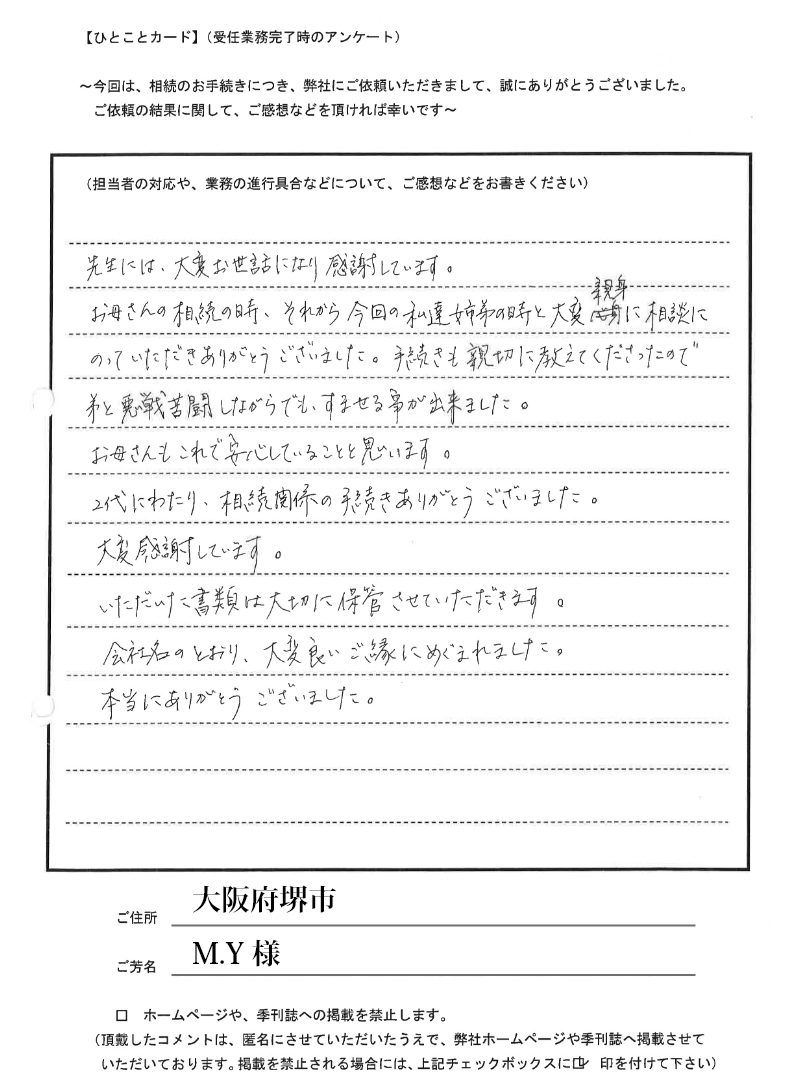 【ひとことカード】（受任業務完了時のアンケート）
～今回は、相続のお手続きにつき、弊社にご依頼いただきまして、誠にありがとうございました。
ご依頼の結果に関して、ご感想などを頂ければ幸いです～
（担当者の対応や、業務の進行具合などについて、ご感想などをお書きください）
先生には、大変お世話になり感謝しています。
お母さんの相続の時、それから今回の私達姉弟の時と大変親身に相談に
のっていただきありがとうございました。手続きも親切に教えてくださったので
弟と悪戦苦闘しながらでも、すませる事が出来ました。
お母さんもこれで安心していることと思います。
2代にわたり、相続関係の手続きありがとうございました。
大変感謝しています。
いただいた書類は大切に保管させていただきます。
会社名のとおり、大変良いご縁にめぐまれました。
本当にありがとうございました。
ご住所 大阪府堺市
ご芳名 M.Y 様
□ ホームページや、季刊誌への掲載を禁止します。
（頂戴したコメントは、匿名にさせていただいたうえで、弊社ホームページや季刊誌へ掲載させて
いただいております。掲載を禁止される場合には、上記チェックボックスに☑ 印を付けて下さい）